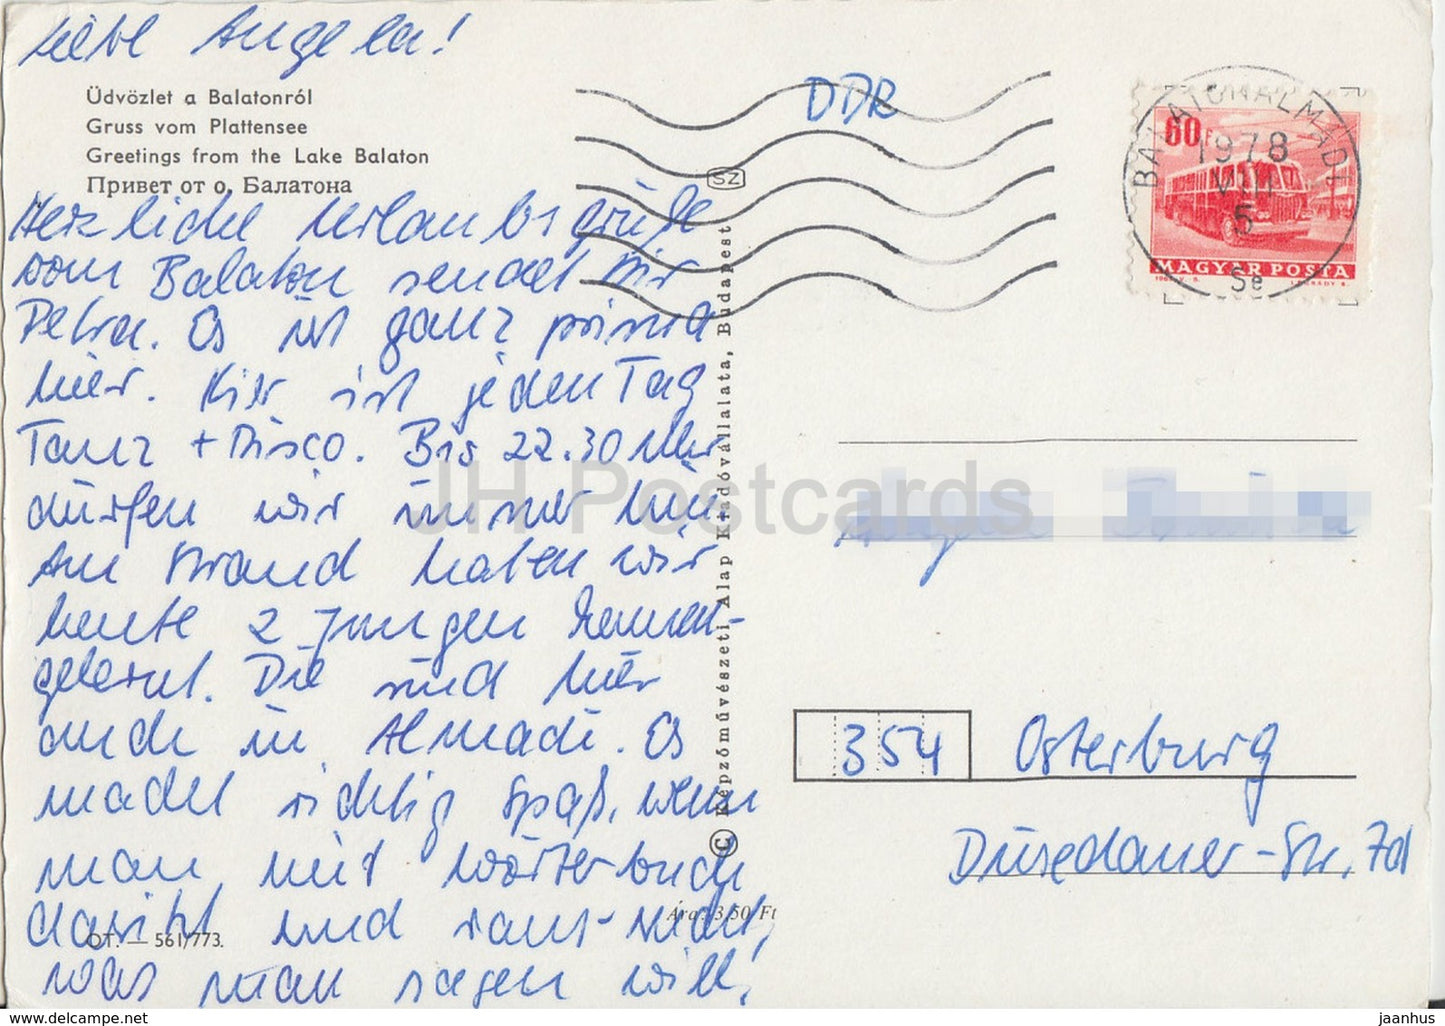 Liebe Angela!
Üdvözlet a Balatonról
Gruss vom Plattensee
Greetings from the Lake Balaton
Привет от о. Балатона
Herzliche Urlaubsgrüße
vom Balaton sendet Dir
Petra. Es ist ganz prima
hier. Hier ist jeden Tag
Tanz + Disco. Bis 22.30 Uhr
dürfen wir immer hin.
Am Strand haben wir
heute 2 Jungen kennen-
gelernt. Die sind hier
auch in Almadi. Es
macht richtig Spaß, wenn
man mit Wörterbuch
dasitzt und raus-sucht,
was man sagen will!
OT. — 561/773.
Ára: 3,50 Ft
SZ
© Képzőművészeti Alap Kiadóvállalata, Budapest
DDR
60 f
MAGYAR POSTA
BALATONALMÁDI
1978
VIII
5
Se
354 Osterburg
Düsedauer-Str. 7d
JH Postcards
www.delcampe.net
jaanhus